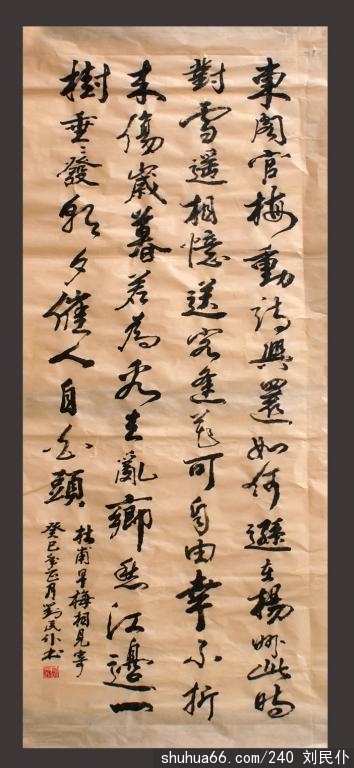 東閣官梅動詩興還如何遜在楊州此時
對雪遥相憶送客逢花可自由幸不折
来傷歲暮若為看去亂鄉愁江邊一
樹垂々發朝夕催人自白頭
杜甫早梅相見寄
癸巳年正月劉民仆书
shuhua66.com/240 刘民仆